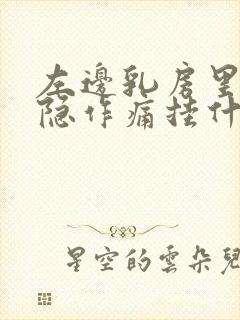 左邊乳房里
隐作痛挂什
星空的雲朵兒